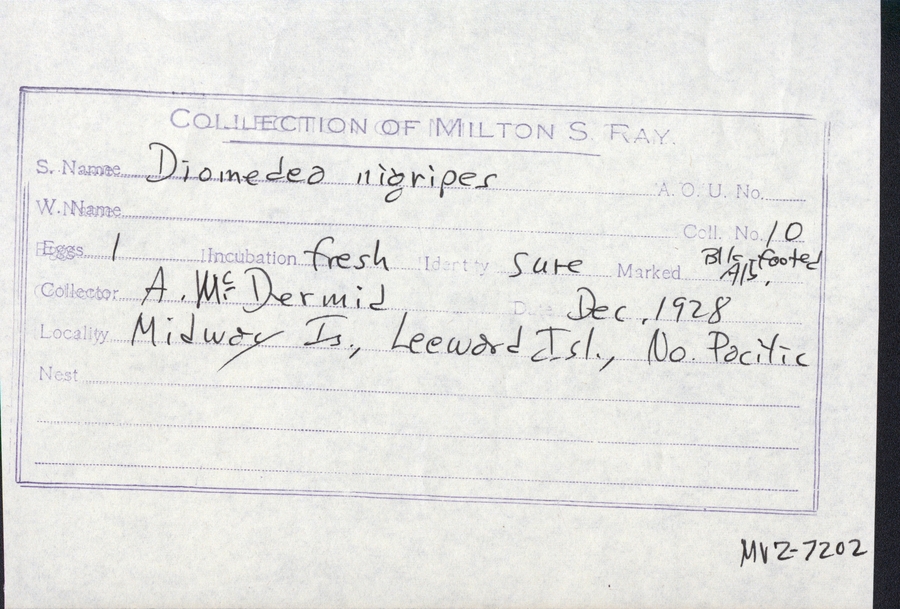 COLLECTION OF MILTON S. RAY.
S. Name Diomedea nigripes A. O. U. No.
W. Name Coll. No. 10
Eggs 1 Incubation fresh Identity sure Marked Blk-footed Alb.
Collector A. McDermid Date Dec. 1928
Locality Midway Is., Leeward Isl., No. Pacific
Nest
MVZ-7202